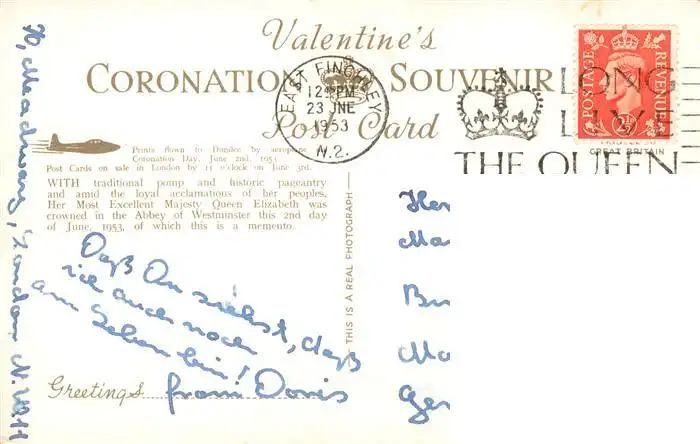 Valentine's
CORONATION SOUVENIR
Post Card
EAST FINCHLEY
12 PM
23 JNE
1953
N.2.
POSTAGE
REVENUE
LONG
LIVE
THE QUEEN
GREAT BRITAIN
Prints flown to Dundee by aeroplane
Coronation Day, June 2nd, 1953.
Post Cards on sale in London by 11 o'clock on June 3rd.
WITH traditional pomp and historic pageantry
and amid the loyal acclamations of her peoples,
Her Most Excellent Majesty Queen Elizabeth was
crowned in the Abbey of Westminster this 2nd day
of June, 1953, of which this is a memento.
THIS IS A REAL PHOTOGRAPH
Daß Du siehst, daß
ich auch noch
am Leben bin!
Greetings from Doris
London N.W.11
Ma